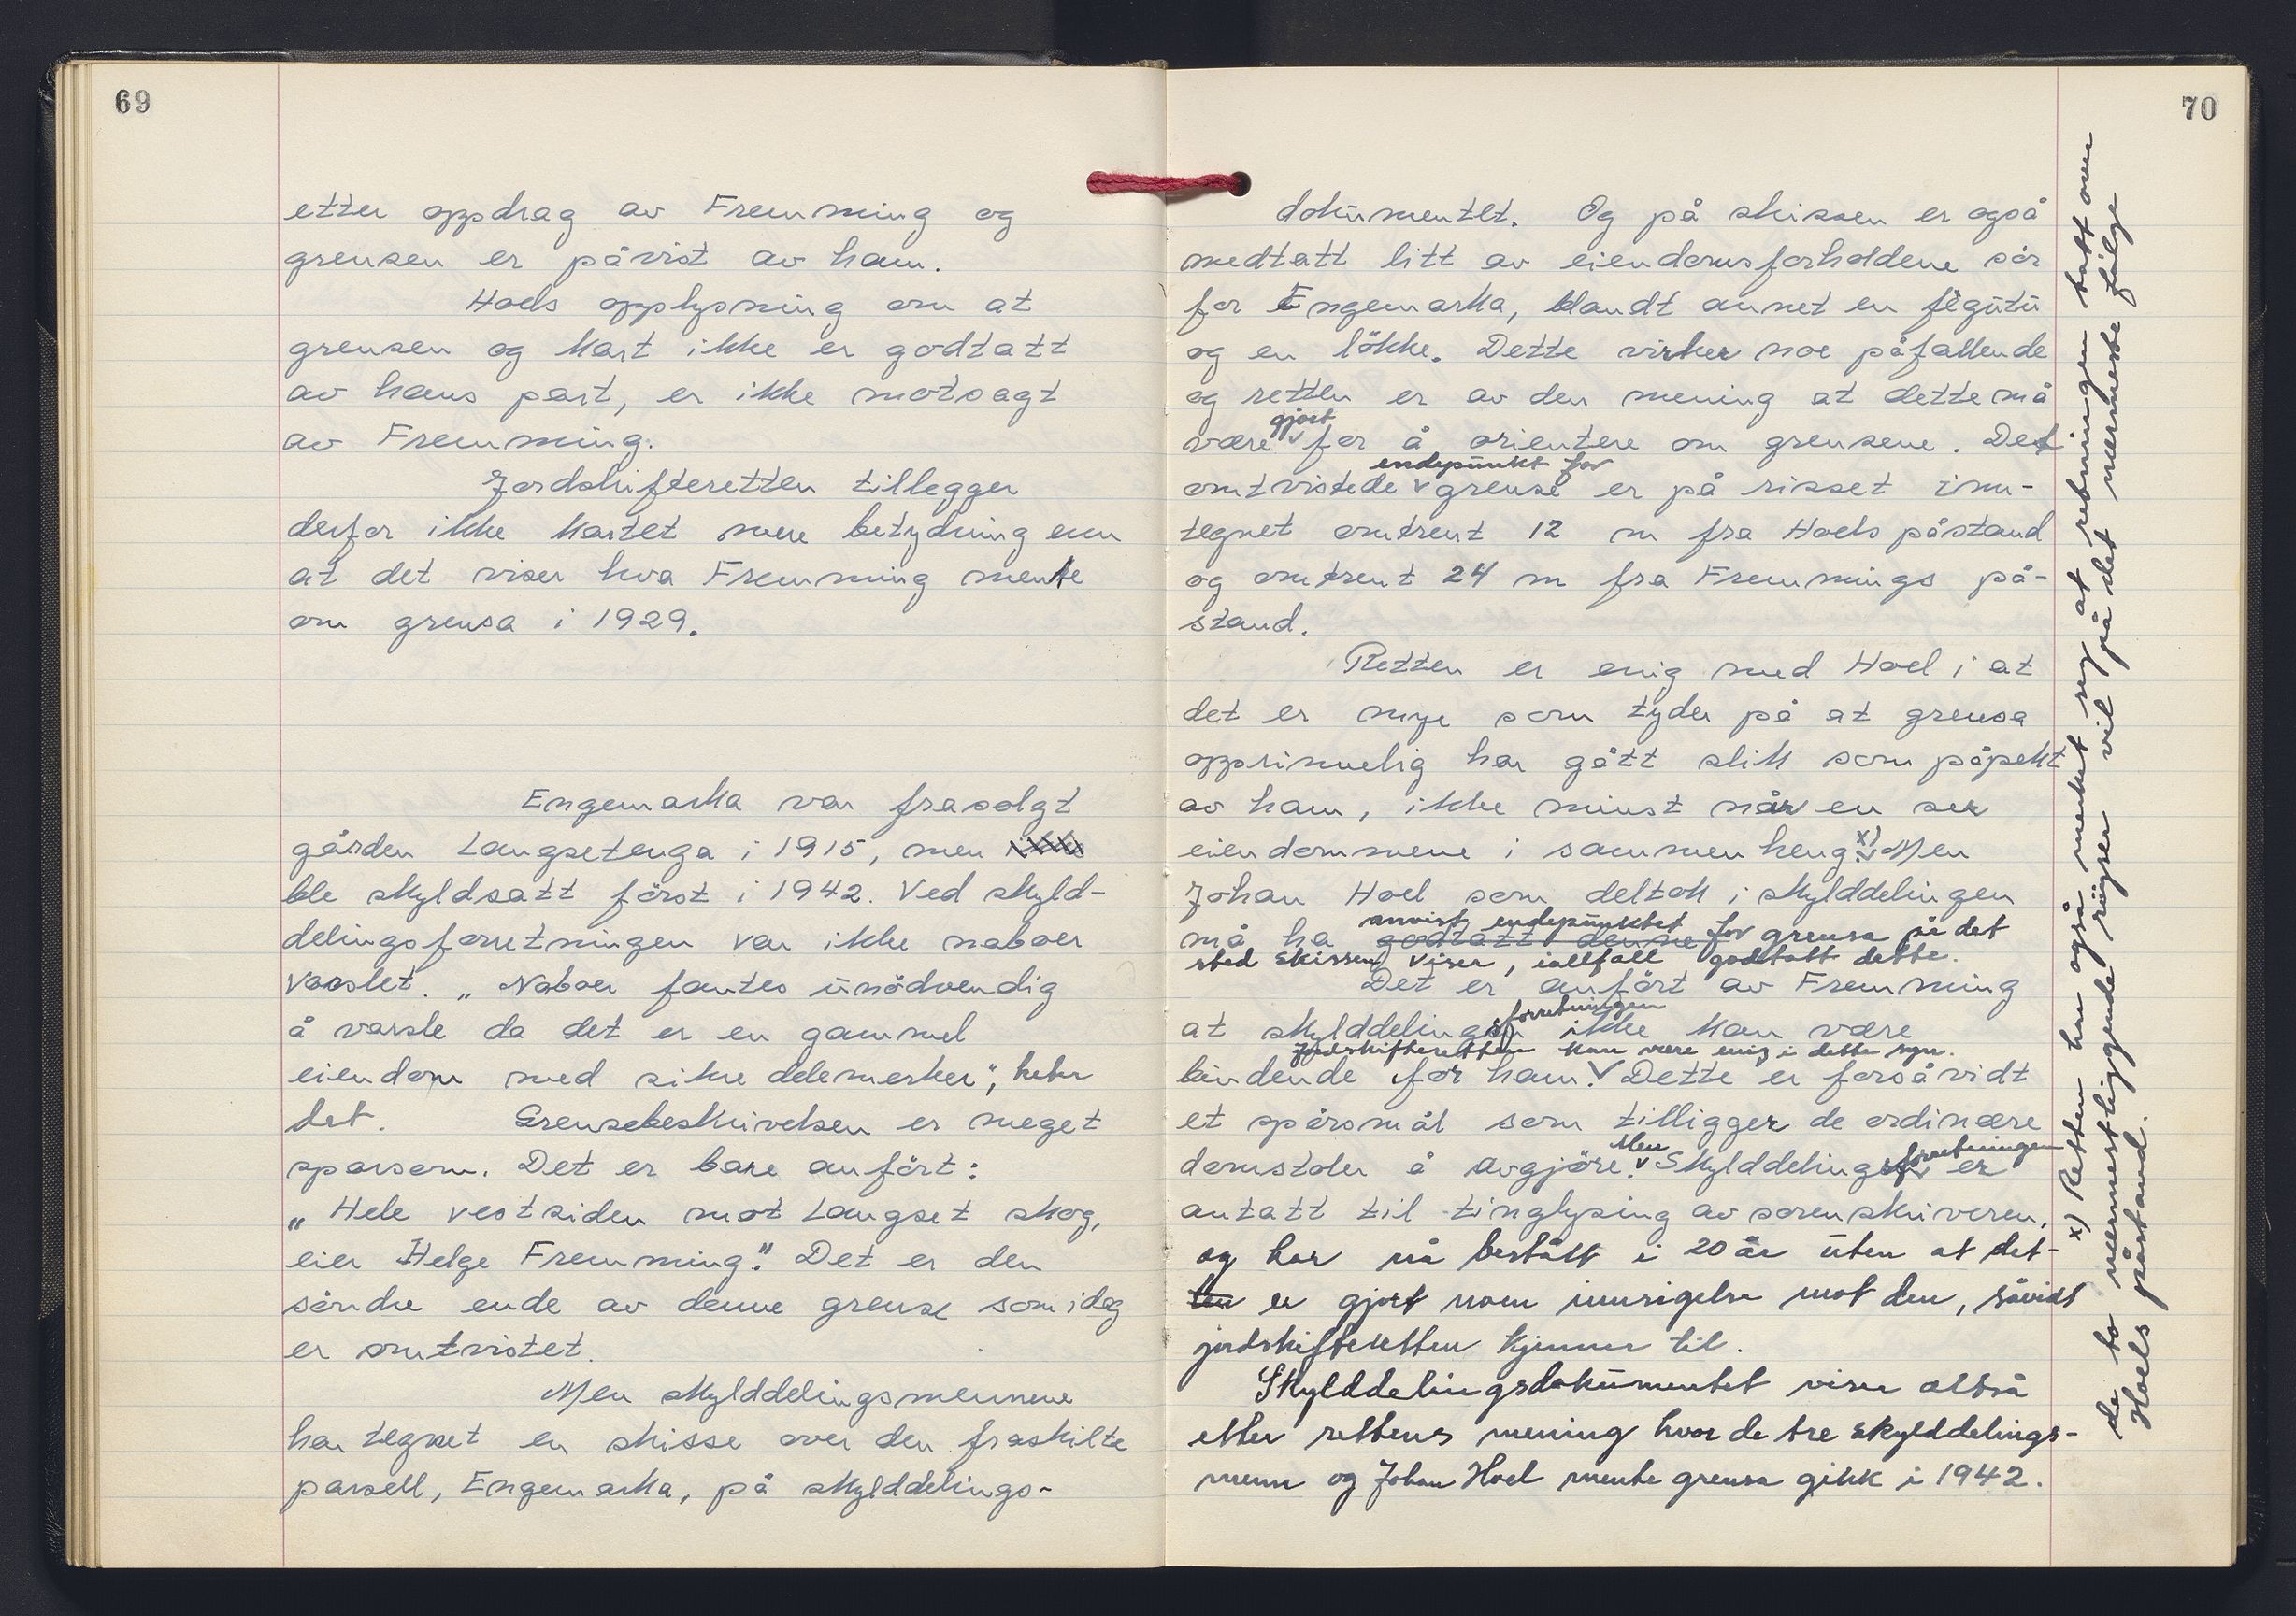 69
etter oppdrag av Fremming og
grensen er påvist av ham.
Hoels opplysning om at
grensen og kart ikke er godtatt
av hans part, er ikke motsagt
av Fremming.
Jordskifteretten tillegger
derfor ikke kartet mere betydning enn
at det viser hva Fremming mente
om grensa i 1929.
Engemarka var frasolgt
gården Langsetenga i 1915, men
ble skyldsatt först i 1942. Ved skyld-
delingsforretningen var ikke naboer
varslet. „Naboer fantes ūnödvendig
å varsle da det er en gammel
eiendom med sikre delemerker", heter
det. Grensebeskrivelsen er meget
sparsom. Det er bare anfört:
„Hele vestsiden mot Langset skog,
eier Helge Fremming." Det er den
söndre ende av denne grense som idag
er omtvistet.
Men skylddelingsmennene
har tegnet en skisse over den fraskilte
parsell, Engemarka, på skylddelings-
70
dokūmentet. Og på skissen er også
medtatt litt av eiendomsforholdene sör
for Engemarka, blandt annet en fegūtū
og en lökke. Dette virker noe påfallende
og retten er av den mening at dette må
gjort
være for å orientere om grensene. Det
endepūnkt for
omtvistede grense er på risset inn-
tegnet omtrent 12 m fra Hoels påstand
og omtrent 24 m fra Fremmings på-
stand.
Retten er enig med Hoel i at
det er mye som tyder på at grensa
opprinnelig har gått slik som påpekt
av ham, ikke minst når en ser
eiendommene i sammenheng. x) Men
Johan Hoel som deltok i skylddelingen
anvist endepūnktet for grensa på det
må ha godtatt denne
sted skissen viser, iallfall godtatt dette.
Det er anfört av Fremming
forretningen
at skylddelings ikke kan være
Jordskifteretten kan være enig i dette syn.
bindende for ham. Dette er forsåvidt
et spörsmål som tilligger de ordinære
Men forretningen
domstoler å avgjöre. Skylddelings er
antatt til tinglysing av sorenskriveren,
og har nå bestått i 20 år ūten at det-
ten er gjort noen innsigelse mot den, såvidt
jordskifteretten kjenner til.
Skylddelingsdokūmentet viser altså
etter rettens mening hvor de tre skylddelings-
menn og Johan Hoel mente grensa gikk i 1942.
x) Retten har også merket seg at retningen tatt over
de to nærmestliggende röyser vil på det nærmeste fölge
Hoels påstand.